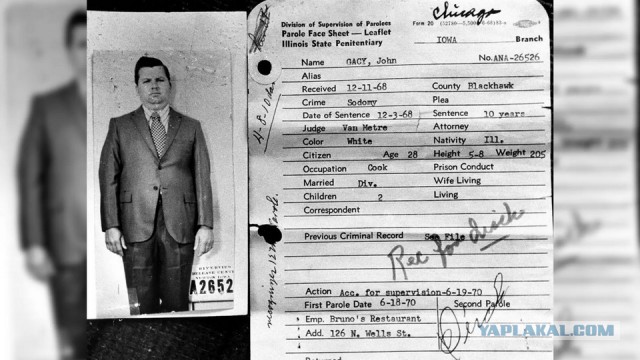 Chicago
Division of Supervision of Parolees
Parole Face Sheet — Leaflet
Illinois State Penitentiary
Form 20
IOWA
Branch
Name GACY, John No. ANA-26526
Alias
Received 12-11-68 County Blackhawk
Crime Sodomy Plea
Date of Sentence 12-3-68 Sentence 10 years
Judge Van Metre Attorney
Color White Nativity Ill.
Citizen Age 28 Height 5-8 Weight 205
Occupation Cook Prison Conduct
Married Div. Wife Living
Children 2 Living
Correspondent
Previous Criminal Record See File
Rec for disch
Action Acc. for supervision-6-19-70
First Parole Date 6-18-70 Second Parole
Emp. Bruno's Restaurant
Add. 126 N. Wells St.
Disch
Returned
A2652
YAPLAKAL.COM